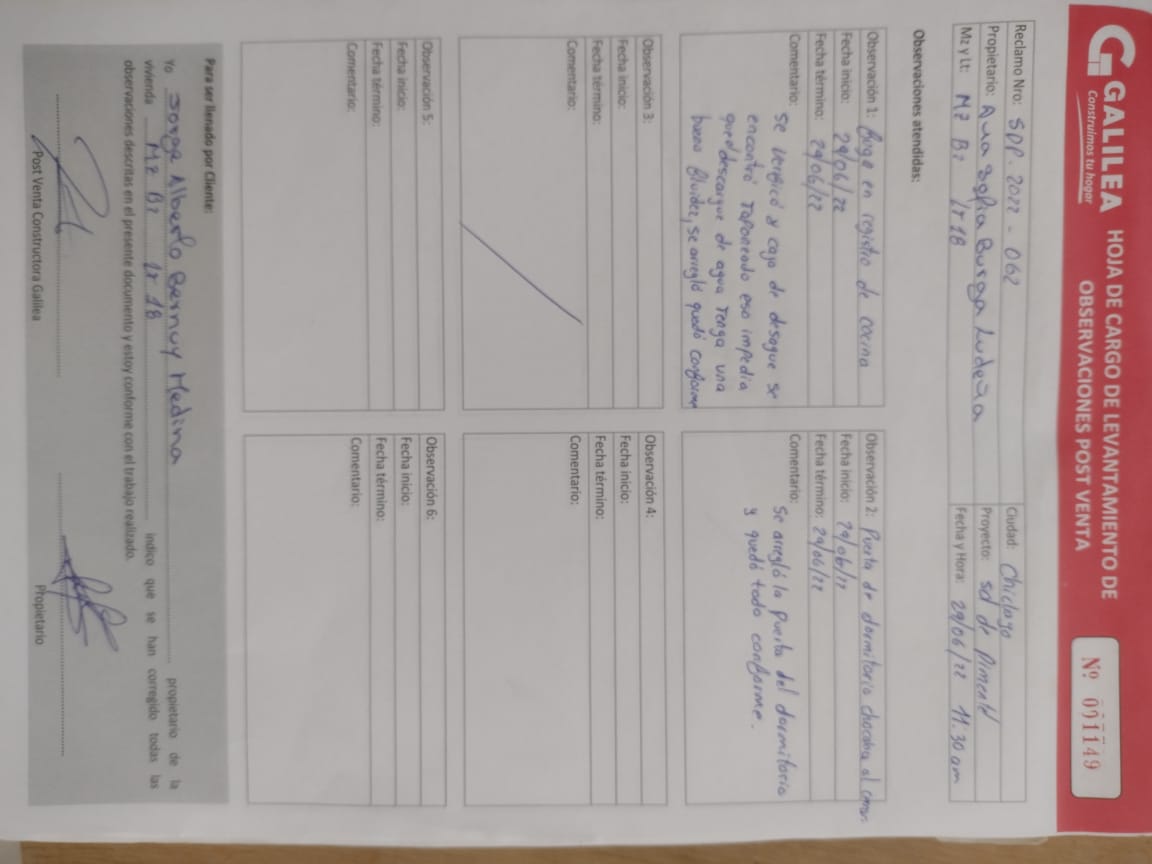 GALILEA
Construimos tu hogar
HOJA DE CARGO DE LEVANTAMIENTO DE
OBSERVACIONES POST VENTA
Nº 001149
Reclamo Nro: SDP-2022-062
Ciudad: Chiclayo
Propietario: Ana Sofia Burga Ludeña
Proyecto: sol de Pimentel
Mz y Lt: Mz B7 LT 18
Fecha y Hora: 29/06/22 11:30 am
Observaciones atendidas:
Observación 1: Fuga en registro de cocina
Fecha inicio: 29/06/22
Fecha término: 29/06/22
Comentario:
Se verificó caja de desague se
encontró taponeado eso impedia
que descargue de agua tenga una
buena fluidez, se arregló quedó conforme
Observación 2: Puerta de dormitorio chocaba al
Fecha inicio: 29/06/22
Fecha término: 29/06/22
Comentario:
Se arregló la puerta del dormitorio
y quedó todo conforme.
Observación 3:
Fecha inicio:
Fecha término:
Comentario:
Observación 4:
Fecha inicio:
Fecha término:
Comentario:
Observación 5:
Fecha inicio:
Fecha término:
Comentario:
Observación 6:
Fecha inicio:
Fecha término:
Comentario:
Para ser llenado por Cliente:
Yo Jorge Alberto Bernuy Medina propietario de la
vivienda Mz B7 LT 18 indico que se han corregido todas las
observaciones descritas en el presente documento y estoy conforme con el trabajo realizado.
Post Venta Constructora Galilea
Propietario